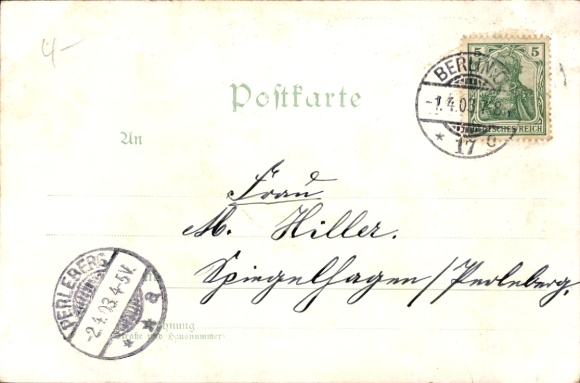 4-
Postkarte
An
5 5
DEUTSCHES REICH
BERLIN
-1.4.03.7-8
* 17
Frau
M. Hiller.
Spiegelhagen/Perleberg.
PERLEBERG
-2.4.03.4-5V.
* * a
Wohnung
(Straße und Hausnummer)